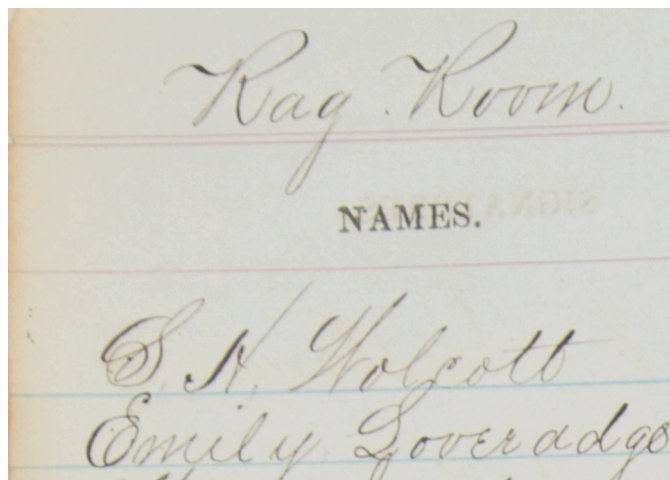 Rag Room.
NAMES.
S. H. Wolcott
Emily Loveradge